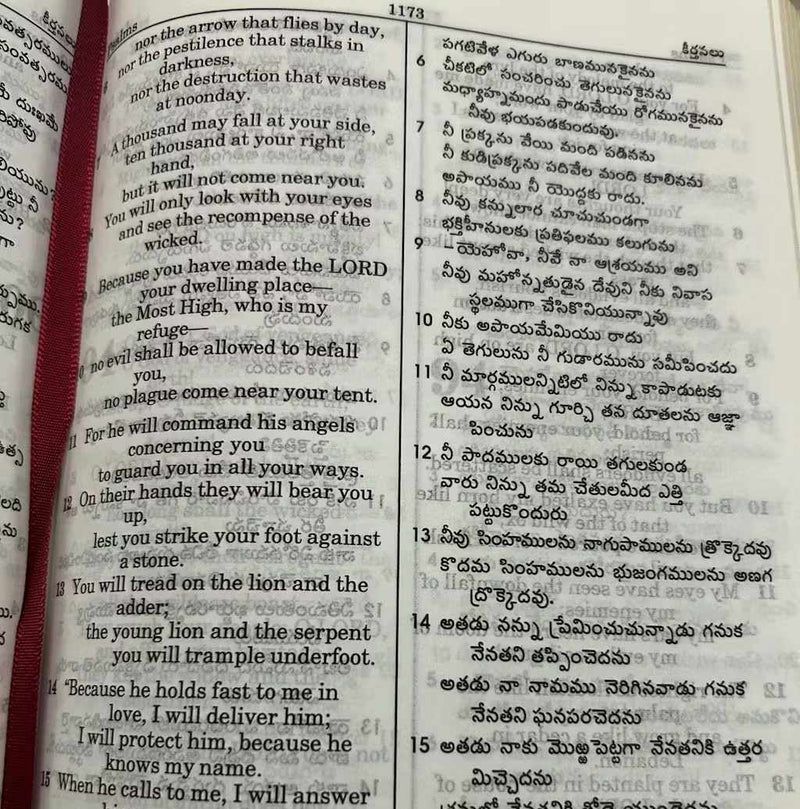 1173
Psalms
nor the arrow that flies by day,
nor the pestilence that stalks in
darkness,
nor the destruction that wastes
at noonday.
A thousand may fall at your side,
ten thousand at your right
hand,
but it will not come near you.
You will only look with your eyes
and see the recompense of the
wicked.
Because you have made the LORD
your dwelling place—
the Most High, who is my
refuge—
no evil shall be allowed to befall
you,
no plague come near your tent.
11 For he will command his angels
concerning you
to guard you in all your ways.
12 On their hands they will bear you
up,
lest you strike your foot against
a stone.
13 You will tread on the lion and the
adder;
the young lion and the serpent
you will trample underfoot.
14 “Because he holds fast to me in
love, I will deliver him;
I will protect him, because he
knows my name.
15 When he calls to me, I will answer
కీర్తనలు
పగటివేళ ఎగురు బాణమునకైనను
6 చీకటిలో సంచరించు తెగులునకైనను
మధ్యాహ్నమందు పాడుచేయు రోగమునకైనను
నీవు భయపడకుందువు.
7 నీ ప్రక్కను వేయి మంది పడినను
నీ కుడిప్రక్కను పదివేల మంది కూలినను
అపాయము నీ యొద్దకు రాదు.
8 నీవు కన్నులార చూచుచుండగా
భక్తిహీనులకు ప్రతిఫలము కలుగును
9 –యెహోవా, నీవే నా ఆశ్రయము అని
నీవు మహోన్నతుడైన దేవుని నీకు నివాస
స్థలముగా చేసికొనియున్నావు
10 నీకు అపాయమేమియు రాదు
ఏ తెగులును నీ గుడారమును సమీపించదు
11 నీ మార్గములన్నిటిలో నిన్ను కాపాడుటకు
ఆయన నిన్ను గూర్చి తన దూతలను ఆజ్ఞా
పించును
12 నీ పాదములకు రాయి తగులకుండ
వారు నిన్ను తమ చేతులమీద ఎత్తి
పట్టుకొందురు
13 నీవు సింహములను నాగుపాములను త్రొక్కెదవు
కొదమ సింహములను భుజంగములను అణగ
ద్రొక్కెదవు.
14 అతడు నన్ను ప్రేమించుచున్నాడు గనుక
నేనతని తప్పించెదను
అతడు నా నామము నెరిగినవాడు గనుక
నేనతని ఘనపరచెదను
15 అతడు నాకు మొఱ్ఱపెట్టగా నేనతనికి ఉత్తర
మిచ్చెదను